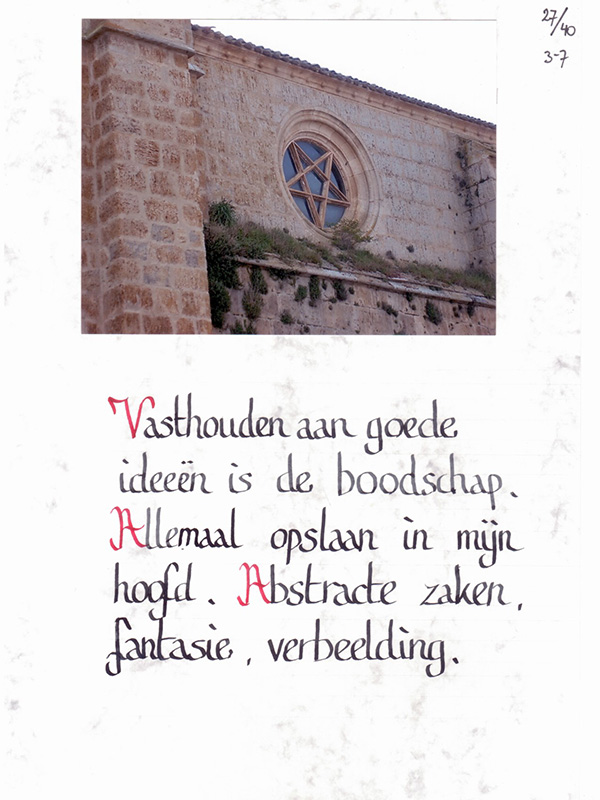 27/40
3-7
Vasthouden aan goede
ideeën is de boodschap.
Allemaal opslaan in mijn
hoofd. Abstracte zaken,
fantasie, verbeelding.